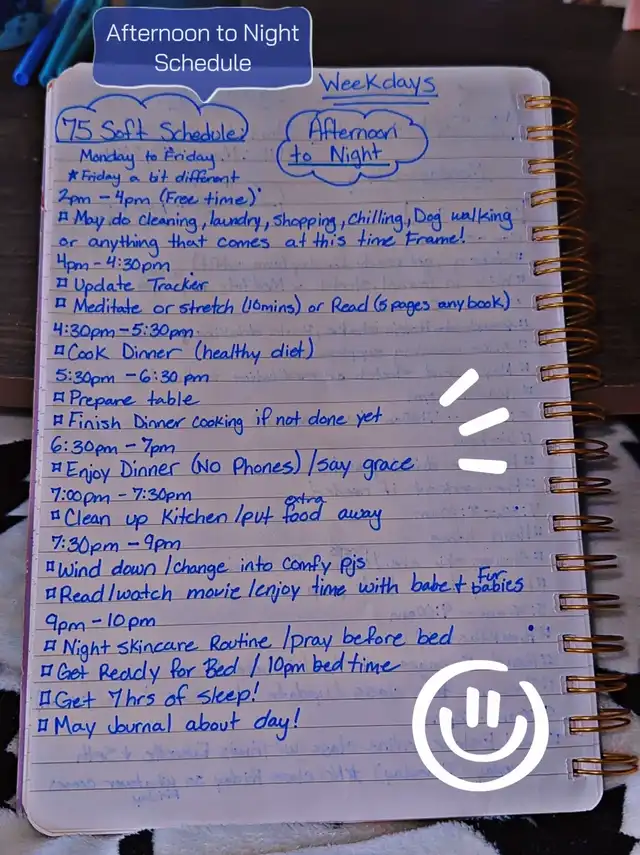 Afternoon to Night
Schedule
Weekdays
75 Soft Schedule
Afternoon
to Night
Monday to Friday
*Friday a bit different
2pm - 4pm (Free time)
May do cleaning, laundry, shopping, chilling, Dog walking
or anything that comes at this time Frame!
4pm - 4:30pm
Update Tracker
Meditate or stretch (10mins) or Read (5 pages any book)
4:30pm - 5:30pm
Cook Dinner (healthy diet)
5:30pm - 6:30pm
Prepare table
Finish Dinner cooking if not done yet
6:30pm - 7pm
Enjoy Dinner (No Phones) / say grace
7:00pm - 7:30pm
Clean up Kitchen / put extra food away
7:30pm - 9pm
Wind down / change into comfy pjs
Read / watch movie / enjoy time with babe + Fur babies
9pm - 10pm
Night skincare Routine / pray before bed
Get Ready for Bed / 10pm bedtime
Get 7hrs of sleep!
May Journal about day!